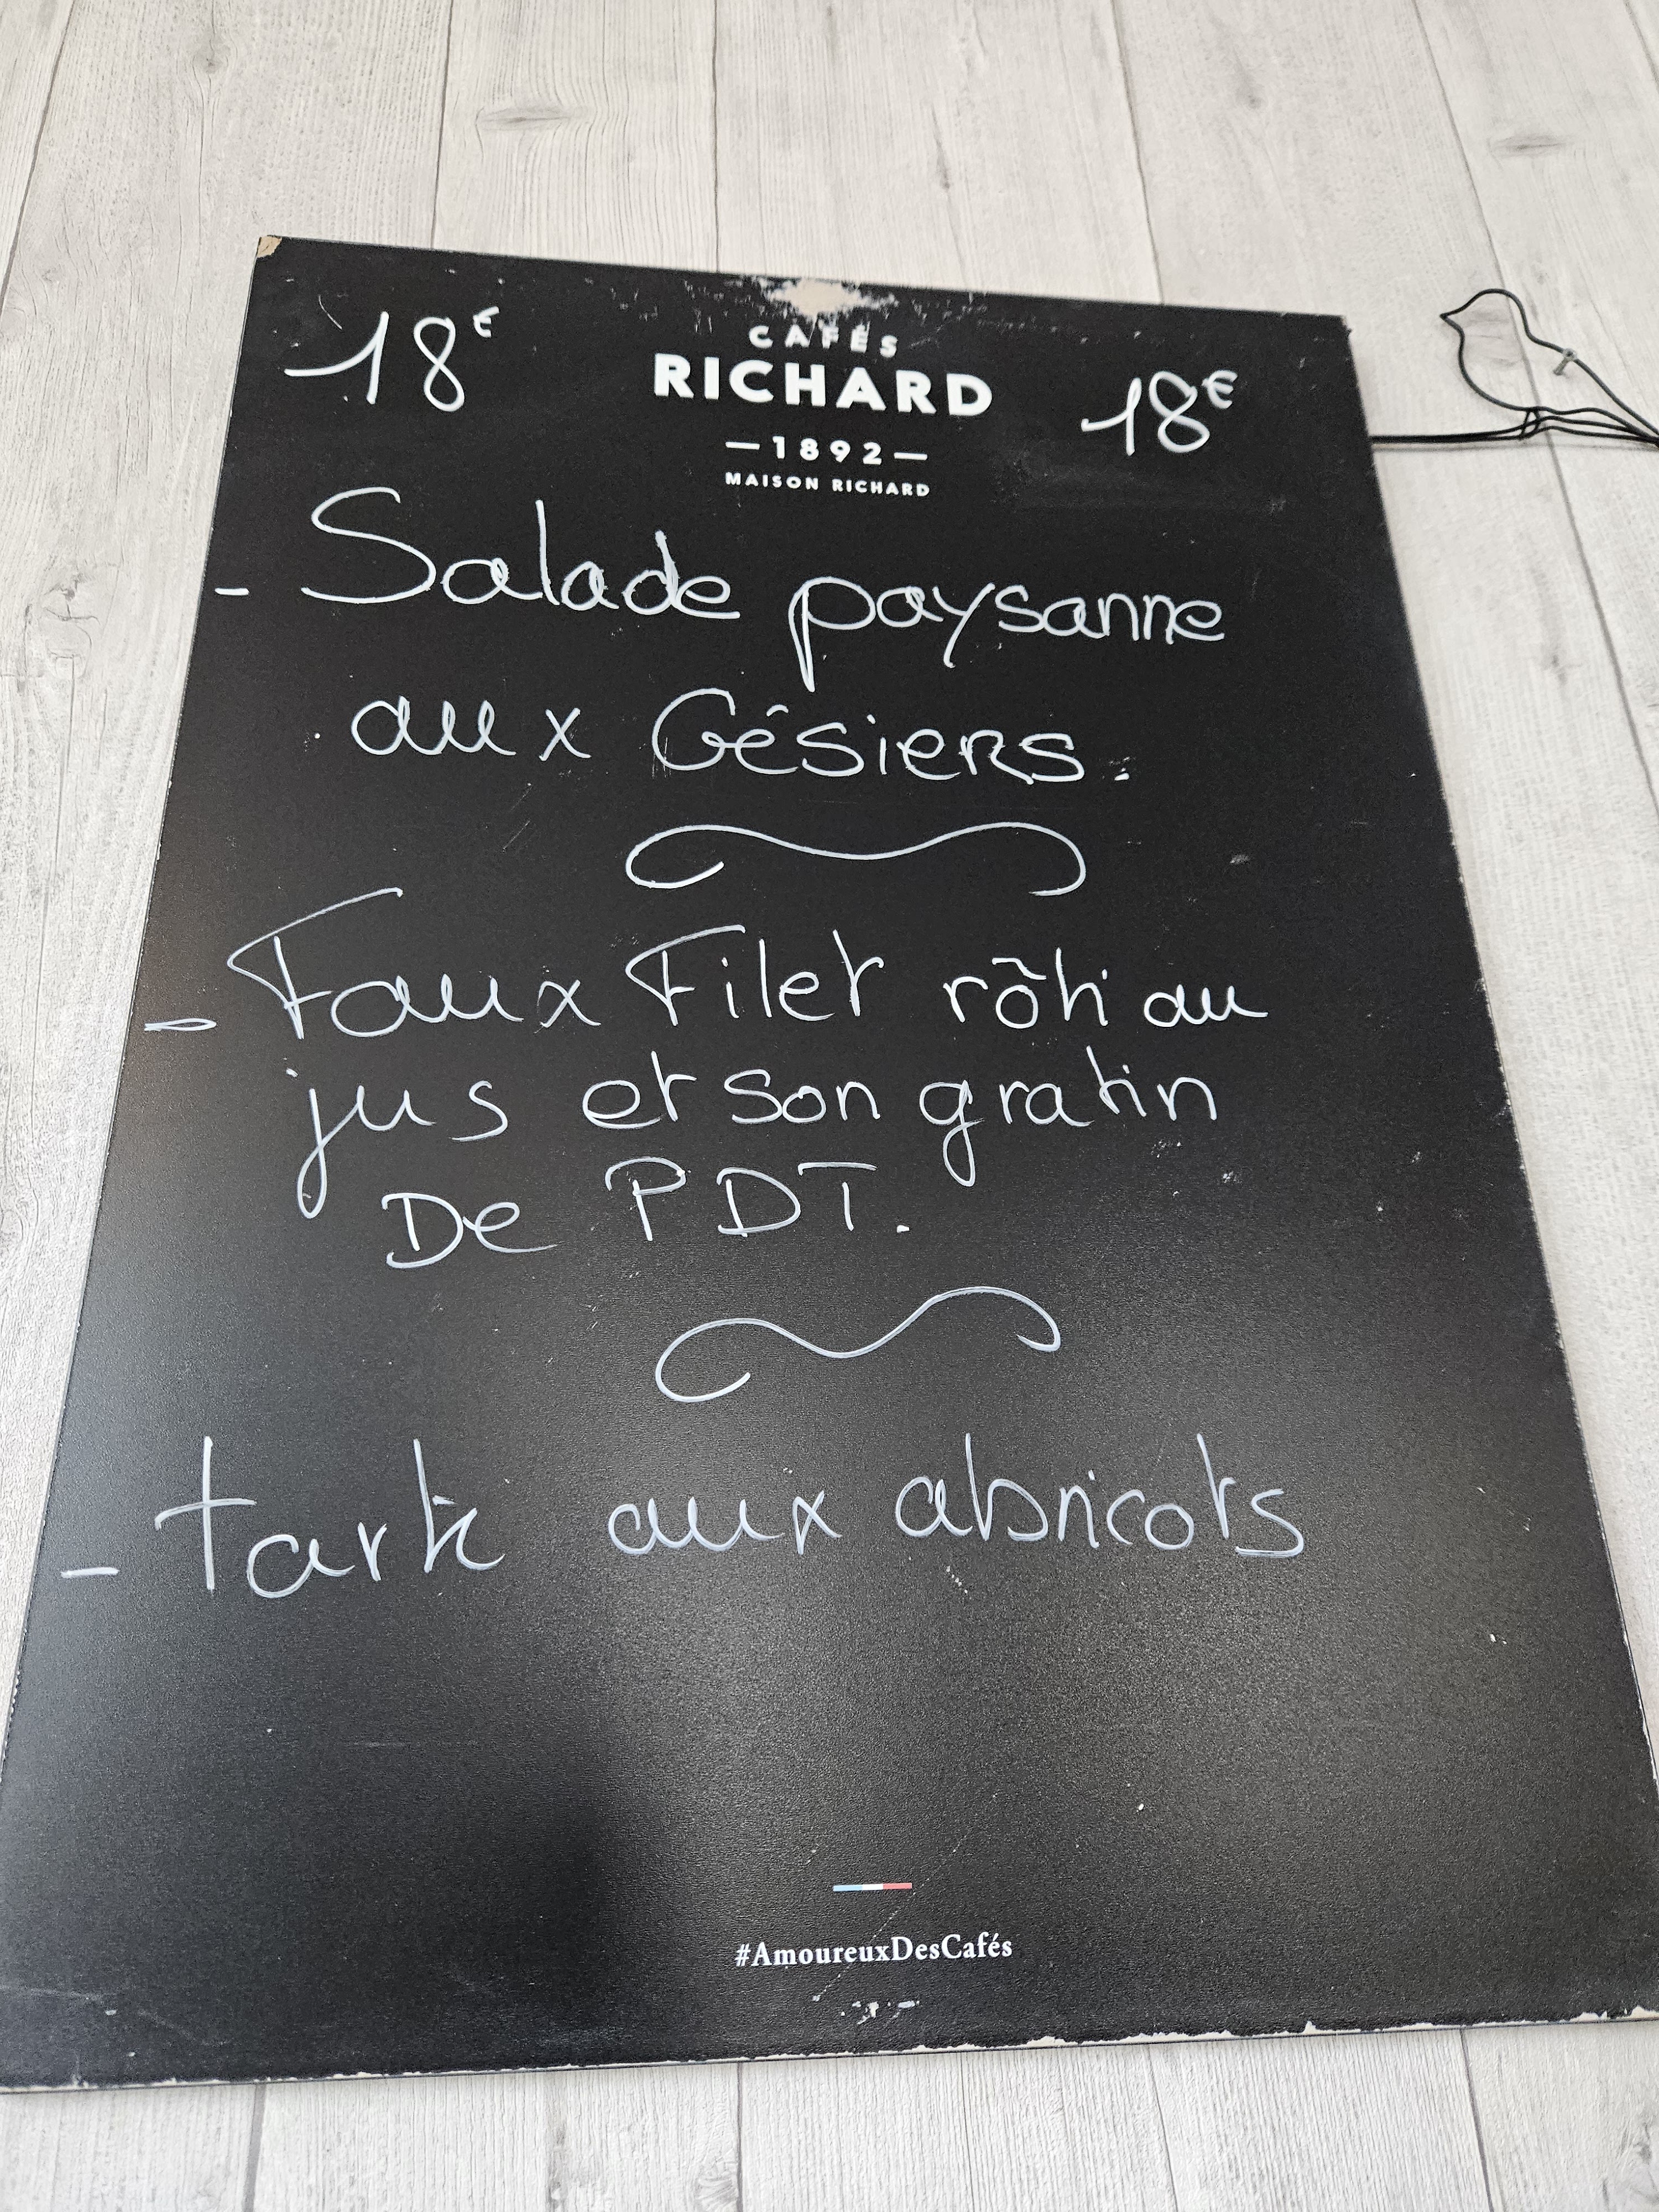 18€
CAFÉS
RICHARD
18€
—1892—
MAISON RICHARD
- Salade paysanne
aux Gésiers.
- Faux Filet rôti au
jus et son gratin
De PDT.
- tarte aux abricots
#AmoureuxDesCafés